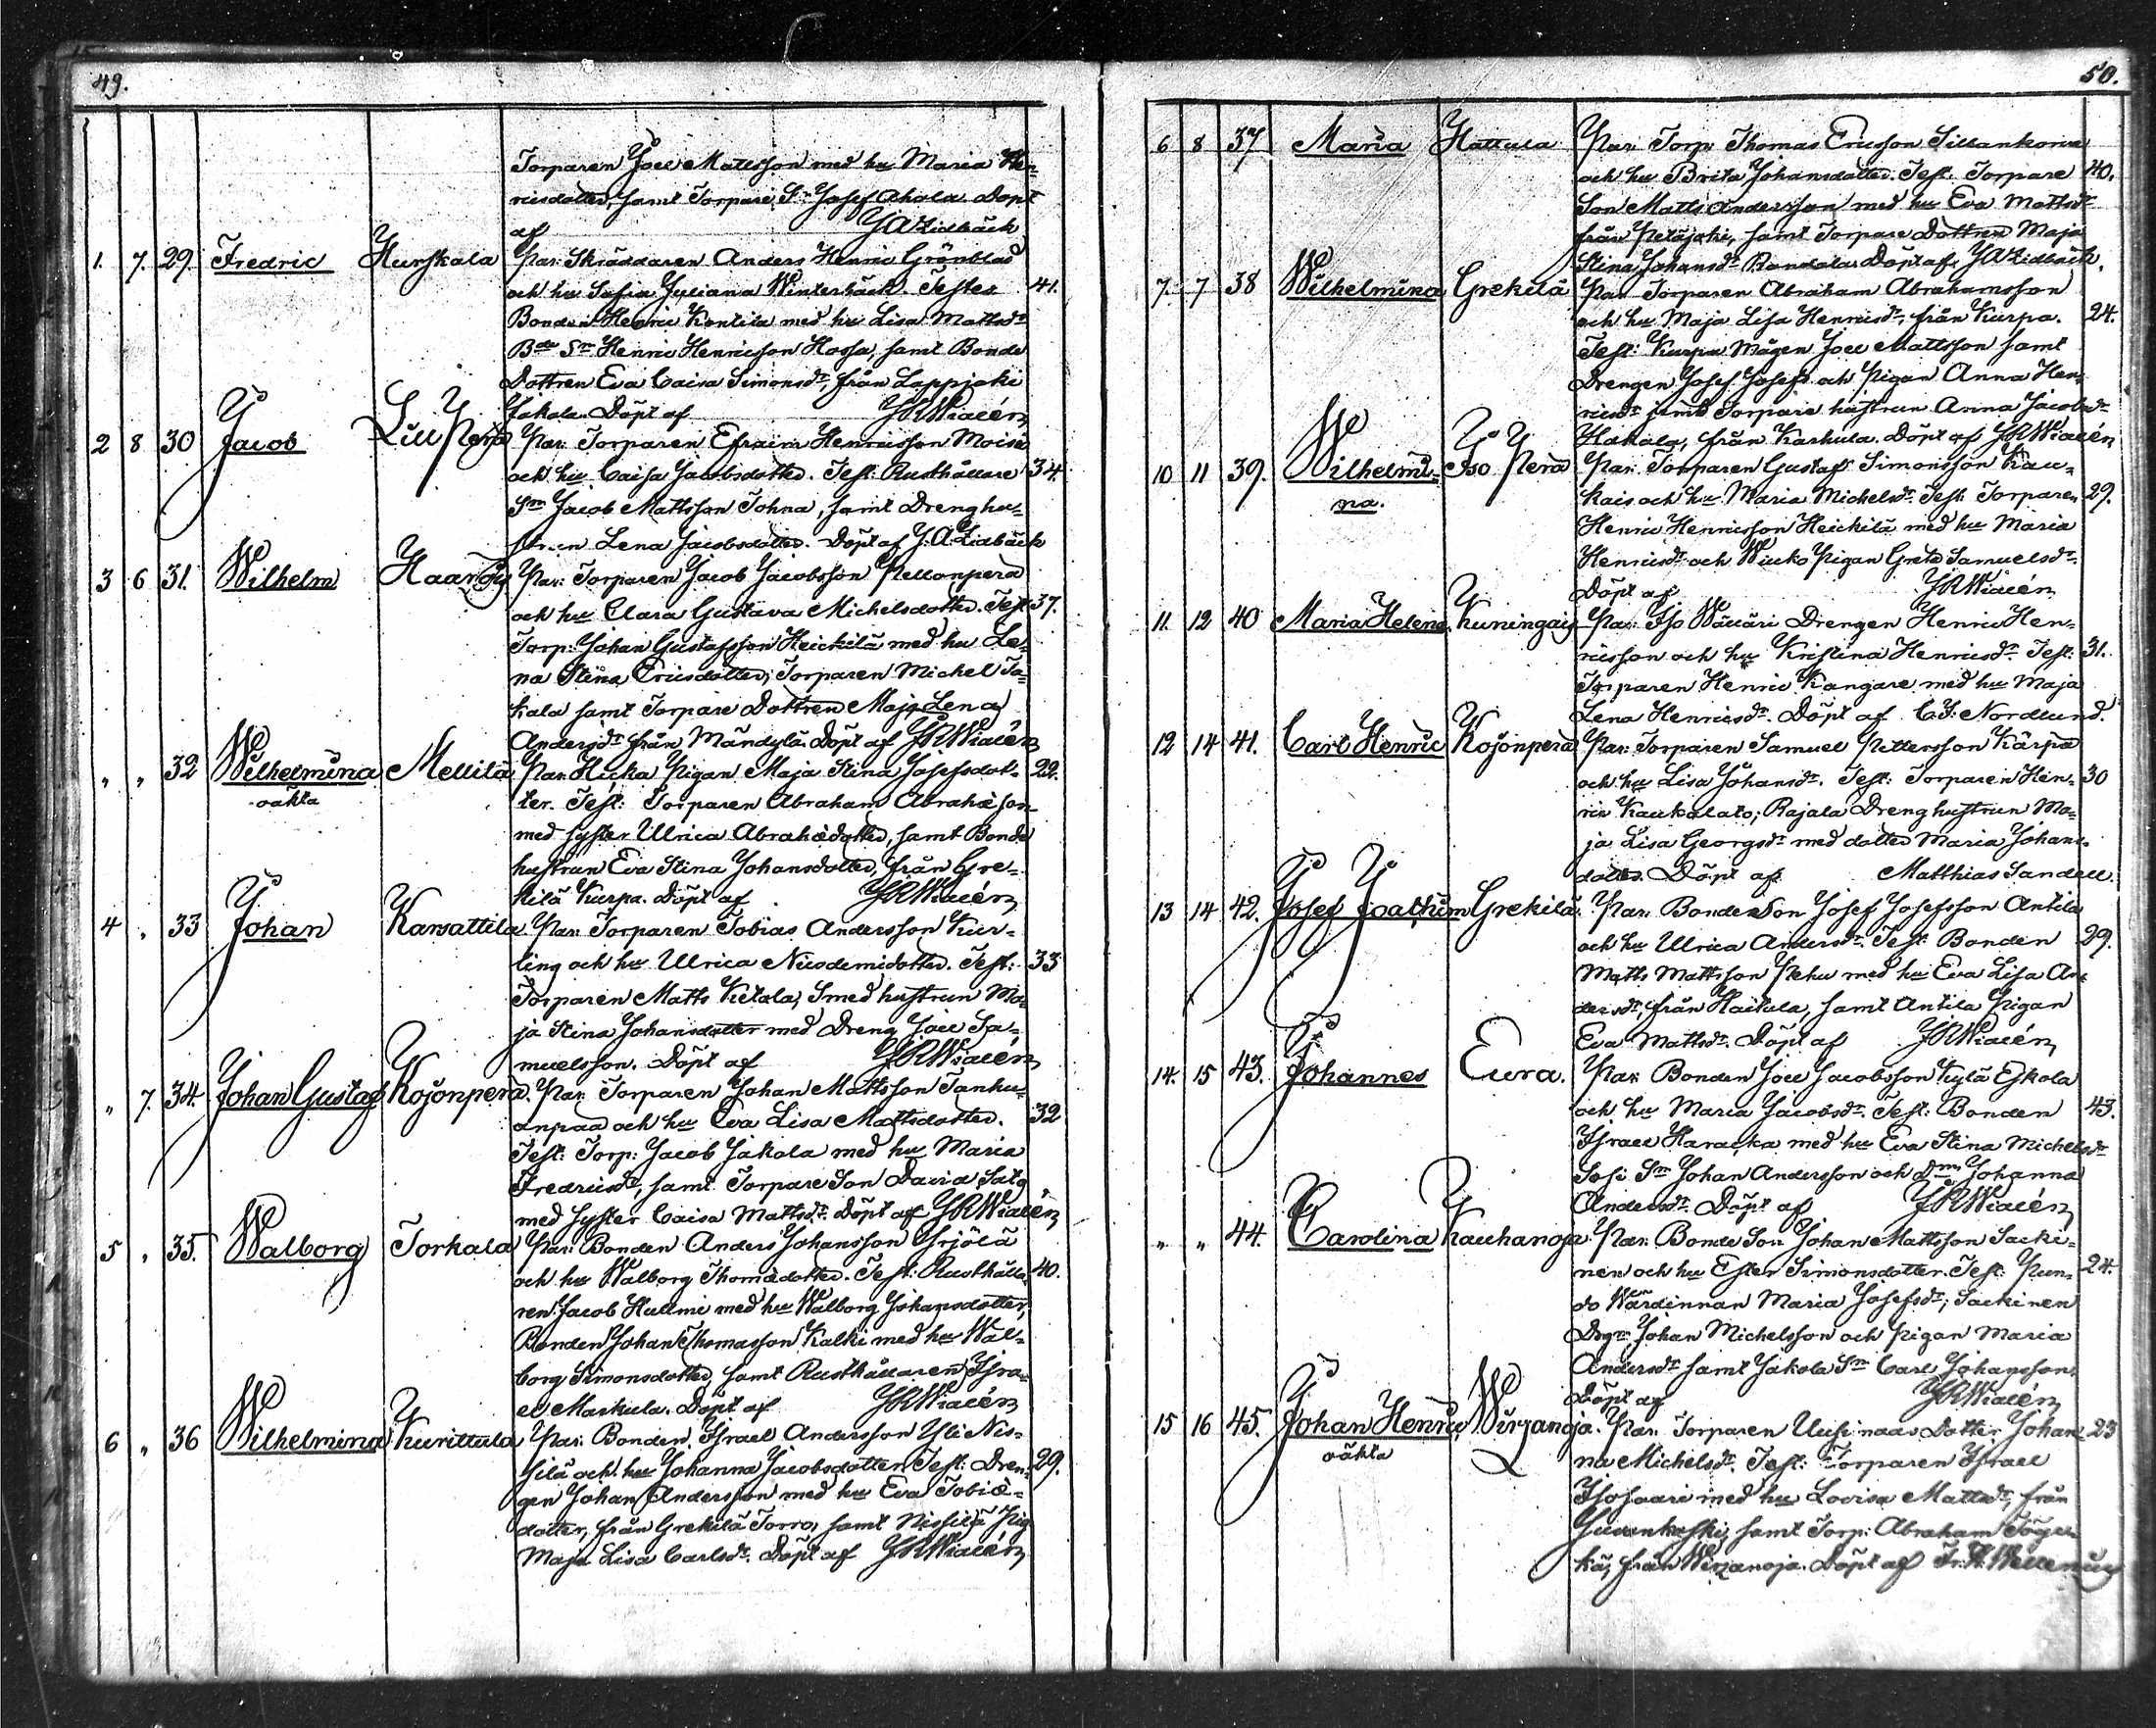 49.
Torparen Joel Mattsson med hu Maria Hen-
ricsdotter, samt Torpare Sn Josef Ahola. Döpt
af J A Lidbäck
1. 7. 29. Fredric Hurskala Par: Skräddaren Anders Henric Grönblad
och hu Sofia Juliana Winterbäck. Testes 41.
Bonden Henric Kontila med hu Lisa Mattsdr
Bde Sn Henric Henricsson Hossa, samt Bonde
Dottren Eva Caisa Simonsdr, från Lappjoki
Jakola. Döpt af J R Widlén
2 8 30 Jacob Liti Perä Par: Torparen Efraim Henricsson Moisi
och hu Caisa Jacobsdotter. Test: Rusthållare 34.
Sn Jacob Mattsson Tohna, samt Dreng hu-
strun Lena Jacobsdotter. Döpt af J. A Lidbäck
3 6 31. Wilhelm Haaroj Par: Torparen Jacob Jacobsson Pellonperä
och hu Clara Gustava Michelsdotter. Test: 37.
Torp: Johan Gustafsson Heickilä med hu Le-
na Stina Ericsdotter, Torparen Michel Ja-
kola samt Torpare Dottren Maja Lena
Andersdr från Mändylä. Döpt af J R Widlén
" " 32 Wilhelmina Mellilä Par: Hicka Pigan Maja Stina Josefsdot- 22.
oäkta ter. Test: Torparen Abraham Abrahæson
med syster Ulrica Abrahædotter, samt Bonde
hustrun Eva Stina Johansdotter, från Gre-
kilä Kurpa. Döpt af J R Widlén
4 " 33 Johan Karsattila Par: Torparen Tobias Andersson Kur-
ling och hu Ulrica Nicodemidotter. Test: 33
Torparen Matts Ketala, Smed hustrun Ma-
ja Stina Johansdotter med Dreng Joel Sa-
muelsson. Döpt af J R Widlén
" 7. 34. Johan Gustaf Kojonperä. Par: Torparen Johan Mattsson Tanhu-
anpää och hu Eva Lisa Mattsdotter. 32
Test: Torp: Jacob Jakola med hu Maria
Fredricsdr, samt Torpare Son David Salo
med syster Caisa Mattsdr. Döpt af J R Widlén
5 " 35. Walborg Torkala Par: Bonden Anders Johansson Yrjölä
och hu Walborg Thomædotter. Test: Rusthålla- 40.
ren Jacob Hullmi med hu Walborg Johansdotter,
Bonden Johan Thomasson Kalki med hu Wal-
borg Simonsdotter, samt Rusthållaren Isra-
el Markula. Döpt af J R Widlén
6 " 36 Wilhelmina Kurittula Par: Bonden Israel Andersson Yli Nis-
silä och hu Johanna Jacobsdotter Test: Dren- 29.
gen Johan Andersson med hu Eva Tobiæ-
dotter, från Grekilä Torro, samt Nissilä Pig
Maja Lisa Carlsdr. Döpt af J R Widlén
50.
6 8 37 Maria Hattula Par: Torp: Thomas Ericsson Sillankorva
och hu Brita Johansdotter. Test: Torpare 40.
Son Matts Andersson med hu Eva Mattsdr
från Petäjoki, samt Torpare Dottren Maja
Stina Johansdr Randala. Döpt af J A Lidbäck.
7. 7 38 Wilhelmina Grekilä Par: Torparen Abraham Abrahamsson
och hu Maja Lisa Henricsdr, från Kurpa. 24.
Test: Kurpa Mågen Joel Mattsson samt
Drengen Josef Josefs och Pigan Anna Hen-
ricsdr samt Torpare hustrun Anna Jacobsdr
Hakala, från Karhula. Döpt af J R Widlén
10 11 39. Wilhelmi- Iso Perä Par: Torparen Gustaf Simonsson Kau-
na. kais och hu Maria Michelsdr. Test: Torparen 29.
Henric Henricsson Heickilä med hu Maria
Henricsdr och Wiuko Pigan Greta Samuelsdr.
Döpt af J R Widlén
11. 12 40 Maria Helena Kuningais Par: Iso Wäckäri Drengen Henric Hen-
ricsson och hu Kristina Henricsdr. Test: 31.
Torparen Henric Kangare med hu Maja
Lena Henricsdr. Döpt af C. J: Nordlund.
12 14 41. Carl Henric Kojonperä Par: Torparen Samuel Pettersson Kärpä
och hu Lisa Johansdr. Test: Torparen Hen- 30
ric Kaukalato; Rajala Dreng hustrun Ma-
ja Lisa Georgsdr med dotter Maria Johans-
dotter. Döpt af Matthias Sandell.
13 14 42. Josef Joachim Grekilä. Par: Bonde Son Josef Josefsson Antila
och hu Ulrica Andersdr. Test: Bonden 29.
Matts Mattsson Pehu med hu Eva Lisa An-
dersdr, från Haitula, samt Antila Pigan
Eva Mattsdr. Döpt af J R Widlén
14. 15 43. Johannes Eura. Par: Bonden Joel Jacobsson Kylä Eskola
och hu Maria Jacobsdr. Test: Bonden 43.
Israel Haracka med hu Eva Stina Michelsdr
Sofi Sn Johan Andersson och Dn Johanna
Andersdr. Döpt af J R Widlén
" " 44. Carolina Kauhanoja. Par: Bonde Son Johan Mattsson Sacki-
nen och hu Ester Simonsdotter. Test: Pun- 24.
do Wärdinnan Maria Josefsdr; Sackinen
Dreg: Johan Michelsson och Pigan Maria
Andersdr samt Jakola Sn Carl Johansson
Döpt af J R Widlén
15 16 45. Johan Henric Wirzanoja. Par: Torparen Uusi naas Dotter Johan- 23
oäkta na Michelsdr. Test: Torparen Israel
Isosaari med hu Lovisa Mattsdr, från
Juvankoski, samt Torp: Abraham Töger-
kä, från Wirzanoja. Döpt af Fr. W. Wellenius